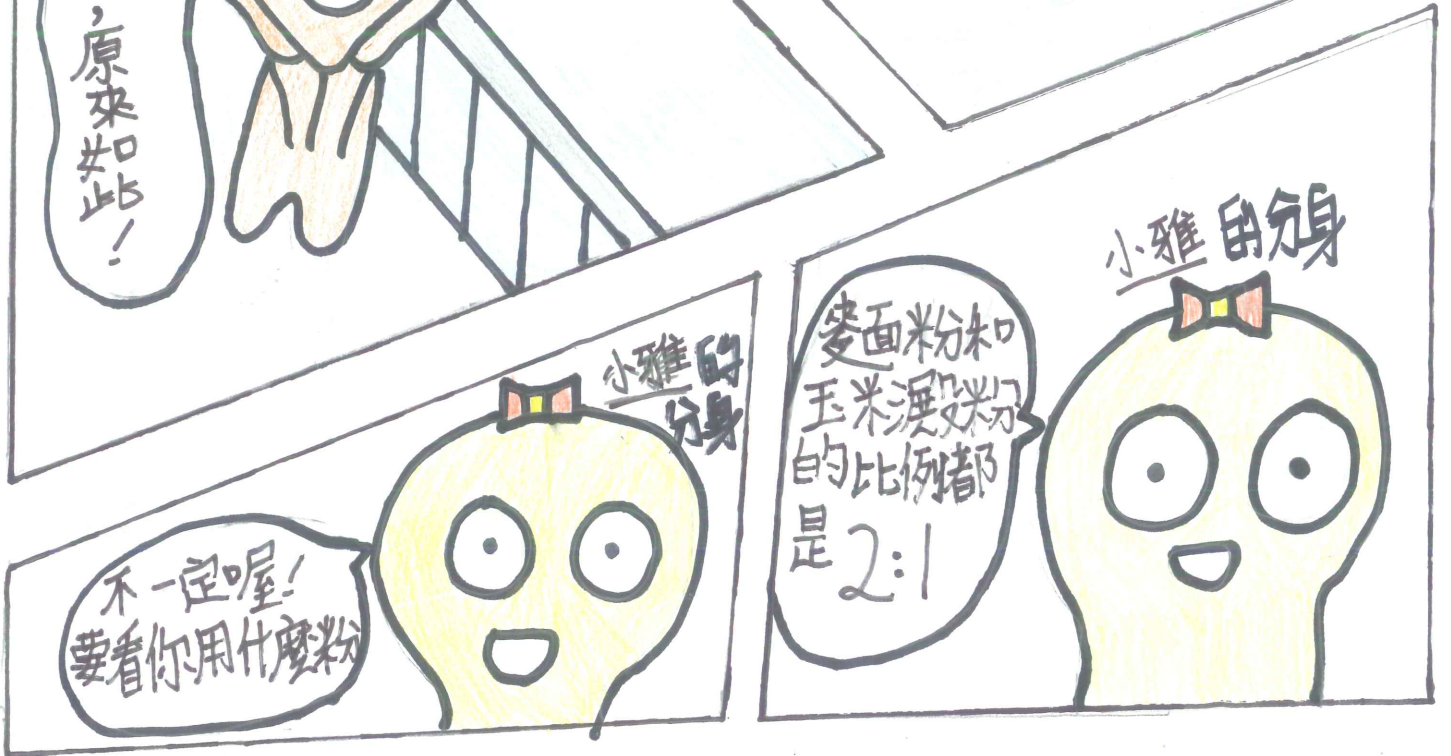 ，原來如此！
小雅的
分身
不一定喔！
要看你用什麼粉
小雅的分身
麥面粉和
玉米澱粉
的比例都
是2:1